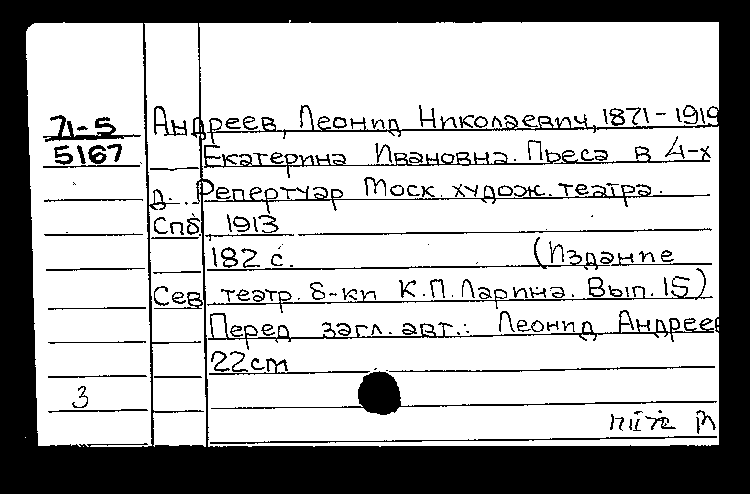 71-5 Андреев, Леонид Николаевич, 1871-1919
5167 Екатерина Ивановна. Пьеса в 4-х
д. Репертуар Моск. худож. театра.
Спб 1913
182 с. (Издание
Сев театр. б-ки К.П. Ларина. Вып. 15)
Перед загл. авт.: Леонид Андреев
22cm
3